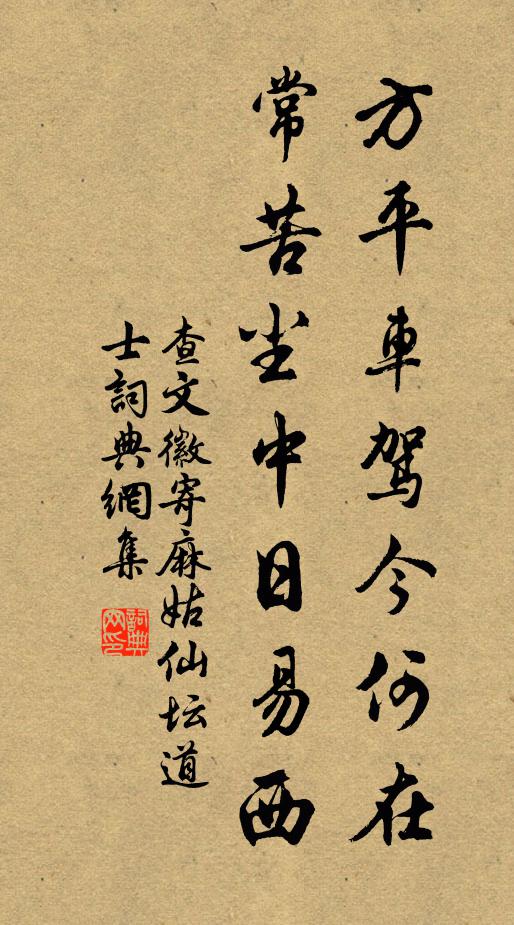 方平車駕今何在
常苦尘中日易西
查文徽寄麻姑仙坛道
士詞典網集
詞典
网印